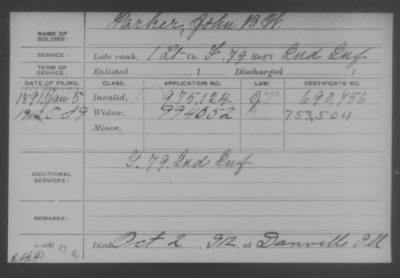 NAME OF SOLDIER: Parker, John B W.
SERVICE: Late rank, 1 Lt Co. F, 79 Reg't Ind Inf
TERM OF SERVICE: Enlisted , 1 Discharged , 1
DATE OF FILING. CLASS. APPLICATION NO. LAW. CERTIFICATE NO.
1891 Jan 5 Invalid, 975,124 690,756
Oct 9 Widow, 994052 753,504
Minor,
ADDITIONAL SERVICES: G. 79. Ind Inf
REMARKS:
Died Oct 2, at Danville Ill